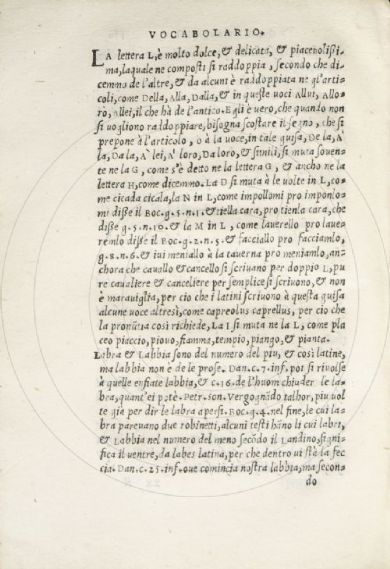 VOCABOLARIO.
LA lettera L, è molto dolce, & delicata, & piaceuolißi-
ma, laquale ne composti si raddoppia, secondo che di-
cemmo de l'altre, & da alcuni è raddoppiata ne gl'arti-
coli, come Della, Alla, Dalla, & in queste uoci Allui, Allo-
ro, Allei, il che hà de l'antico. Egli è uero, che quando non
si uogliono raddoppiare, bisogna scostare il segno, che si
prepone à l'articolo, o à la uoce, in tale guisa, De la, A'
la, Da la, A' lei, A' loro, Da loro, & simili, si muta souen-
te ne la G, come s'è detto ne la lettera G, & ancho ne la
lettera H, come dicemmo. La D si muta à le uolte in L, co-
me cicada cicala, la N in L, come impollomi pro imponlo-
mi disse il Boc. g. 5. n. 1. & tiella cara, pro tienla cara, che
disse g. 5. n. 10. & la M in L, come lauerello pro laue-
remlo disse il Boc. g. 2. n. 5. & facciallo pro facciamlo,
g. 8. n. 6. & iui meniallo à la tauerna pro meniamlo, an-
chora che cauallo & cancello si scriuano per doppio L, pu
re caualiere & canceliere per semplice si scriuono, & non
è marauiglia, per cio che i latini scriuono à questa guisa
alcune uoce altresì, come capreolus caprellus, per cio che
la pronūcia così richiede, La I si muta ne la L, come pla
ceo piaccio, piouo, fiamma, tempio, piango, & pianta.
Labra & Labbia sono del numero del piu, & così latine,
ma labbia non è de le prose. Dan. c. 7. inf. poi si riuolse
à quelle enfiate labbia, & c. 16. de l'huom chiuder le la-
bra, quant'ei potè. Petr. son. Vergognādo talhor, piu uol
te già per dir le labra apersi. Boc. g. 4. nel fine, le cui la-
bra pareuano due robinetti, alcuni testi hāno li cui labri,
& Labbia nel numero del meno secōdo il Landino, signi-
fica il uentre, da labes latina, per che dentro ui stà la fec
cia. Dan. c. 25. inf. oue comincia nostra labbia, ma secon-
do